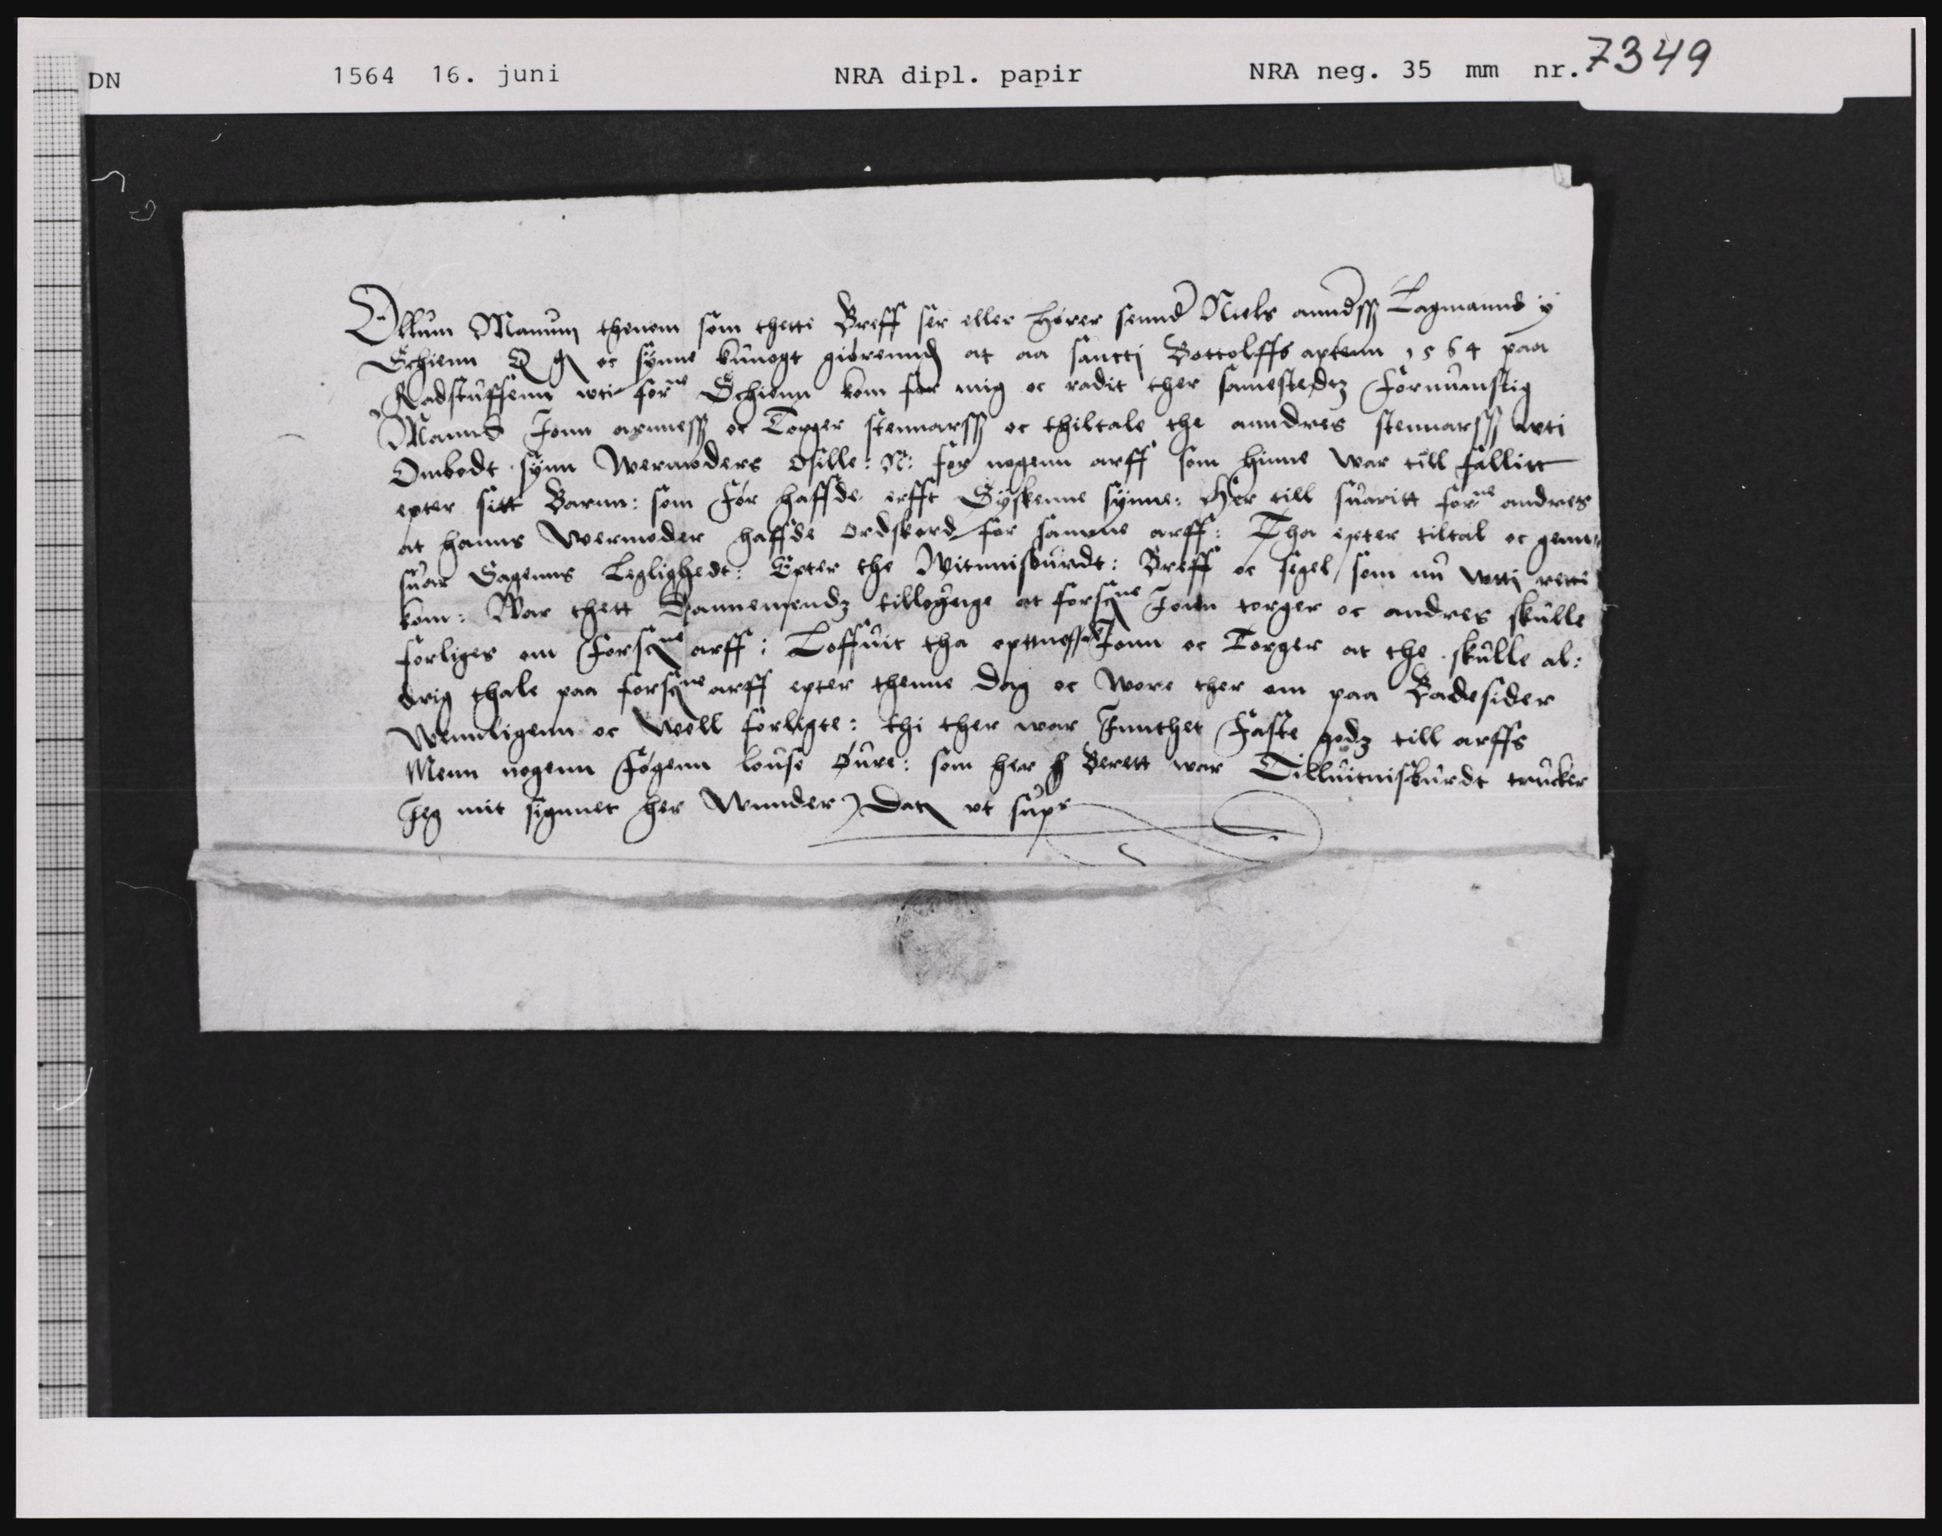 DN 1564 16. juni NRA dipl. papir NRA neg. 35 mm nr. 7349
Ollum Mannum thenom som thette Breff ser eller hører sennd Niels anndss Lagmannd y
Schienn Q g oc synne kunogt giørennd at aa sancti Bottolffs aptenn 1564 paa
Radstuffuenn wti forne Schienn kom for mig oc radit ther samestedtz fornumstig
Mannd Jonn arnness oc Torger stennarss oc thiltale the anndres stennarss wti
Ombodt synn Wermoders Osille: N: for nogenn arff som hinne war till fallitt
epter sitt Barnn: som før haffde erfft Syskenne synne: Her till suaritt forne andres
at hanns Wermoder haffde ordskord for samme arff: Tha epter tiltal oc genn-
suar Sagenns Leglighedt: Epter the Witnnisburdt: Breff oc segel som nu wtti rette
kom: War thett Dannemendz tilløgnige at forscne Jonn torger oc andres skulle
forliges om forscne arff: Loffuit tha optnessde Jonn oc Torger at the skulle al:
drig thale paa forscne arff epter thenne dag oc Wore ther om paa Badesider
Wennligenn oc Well forligte: thi ther war Innthet faste godz till arffs
Menn nogenn føgenn louse Øure: som her Berett war Tilluitnisburdt trucker
Jeg mit signnet her Wnnder Dat ut supr